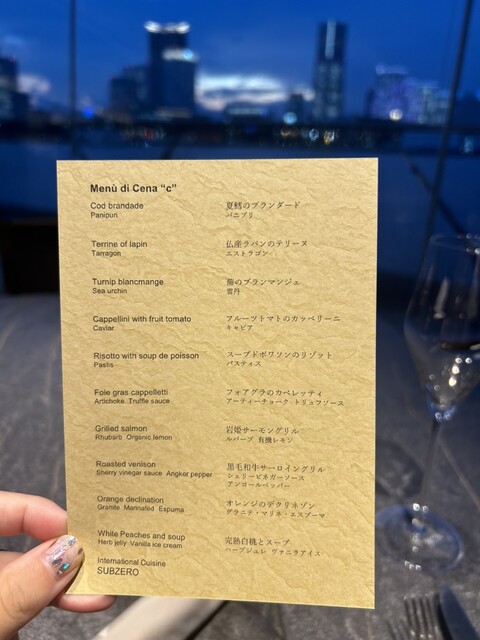 Menù di Cena “c”
Cod brandade
Panipuri
夏鱈のブランダード
パニプリ
Terrine of lapin
Tarragon
仏産ラパンのテリーヌ
エストラゴン
Turnip blancmange
Sea urchin
蕪のブランマンジェ
雲丹
Cappellini with fruit tomato
Caviar
フルーツトマトのカッペリーニ
キャビア
Risotto with soup de poisson
Pastis
スープドポワソンのリゾット
パスティス
Foie gras cappelletti
Artichoke Truffle sauce
フォアグラのカペレッティ
アーティーチョーク トリュフソース
Grilled salmon
Rhubarb Organic lemon
岩姫サーモングリル
ルバーブ 有機レモン
Roasted venison
Sherry vinegar sauce Angkor pepper
黒毛和牛サーロイングリル
シェリービネガーソース
アンコールペッパー
Orange declination
Granite Marinated Espuma
オレンジのデクリネゾン
グラニテ・マリネ・エスプーマ
White Peaches and soup
Herb jelly Vanilla ice cream
完熟白桃とスープ
ハーブジュレ ヴァニラアイス
International Cuisine
SUBZERO